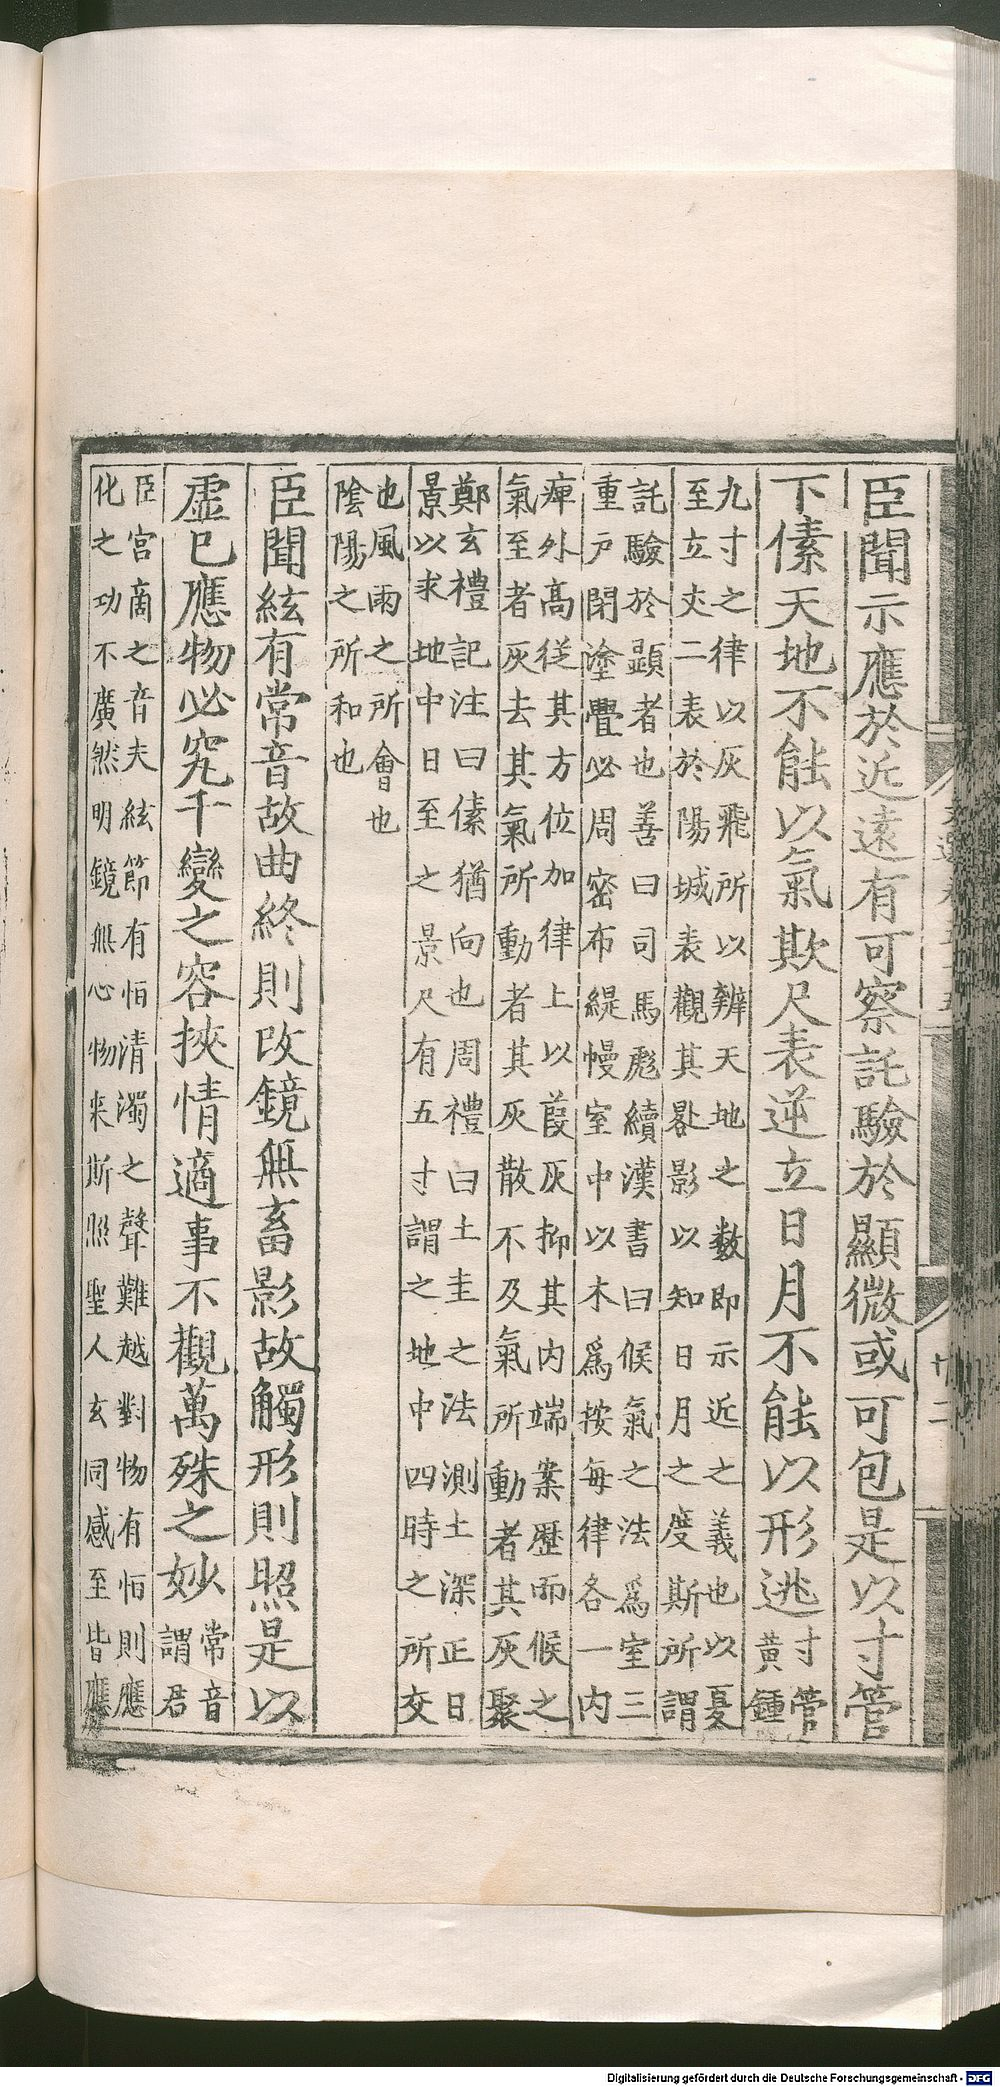 臣聞示應於近遠有可察託驗於顯微或可包是以寸管
下傃天地不能以氣欺尺表逆立日月不能以形逃寸管黃鍾
九寸之律以灰飛所以辨天地之數即示近之義也以夏
至立丈二表於陽城表觀其晷影以知日月之度斯所謂
託驗於顯者也善曰司馬彪續漢書曰候氣之法爲室三
重戶閉塗釁必周密布緹幔室中以木爲按每律各一內
庳外高從其方位加律上以葭灰抑其內端案歷而候之
氣至者灰去其氣所動者其灰散不及氣所動者其灰聚
鄭玄禮記注曰傃猶向也周禮曰土圭之法測土深正日
景以求地中日至之景尺有五寸謂之地中四時之所交
也風雨之所會也
陰陽之所和也
臣聞絃有常音故曲終則改鏡無畜影故觸形則照是以
虛己應物必究千變之容挾情適事不觀萬殊之妙常音謂君
臣宮商之音夫絃節有恒清濁之聲難越對物有恒則應
化之功不廣然明鏡無心物來斯照聖人玄同感至皆應
廿二
Digitalisierung gefördert durch die Deutsche Forschungsgemeinschaft - DFG